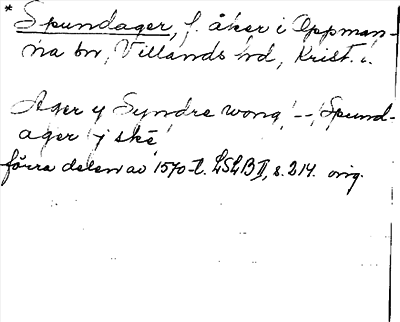 * Spundager, f. åker i Oppman-
na sn, Villands hd, Krist. l.
Ager y Syndre wong, -- Spund-
ager j ske
förra delen av 1570-t. LSLB II, s. 214. orig.